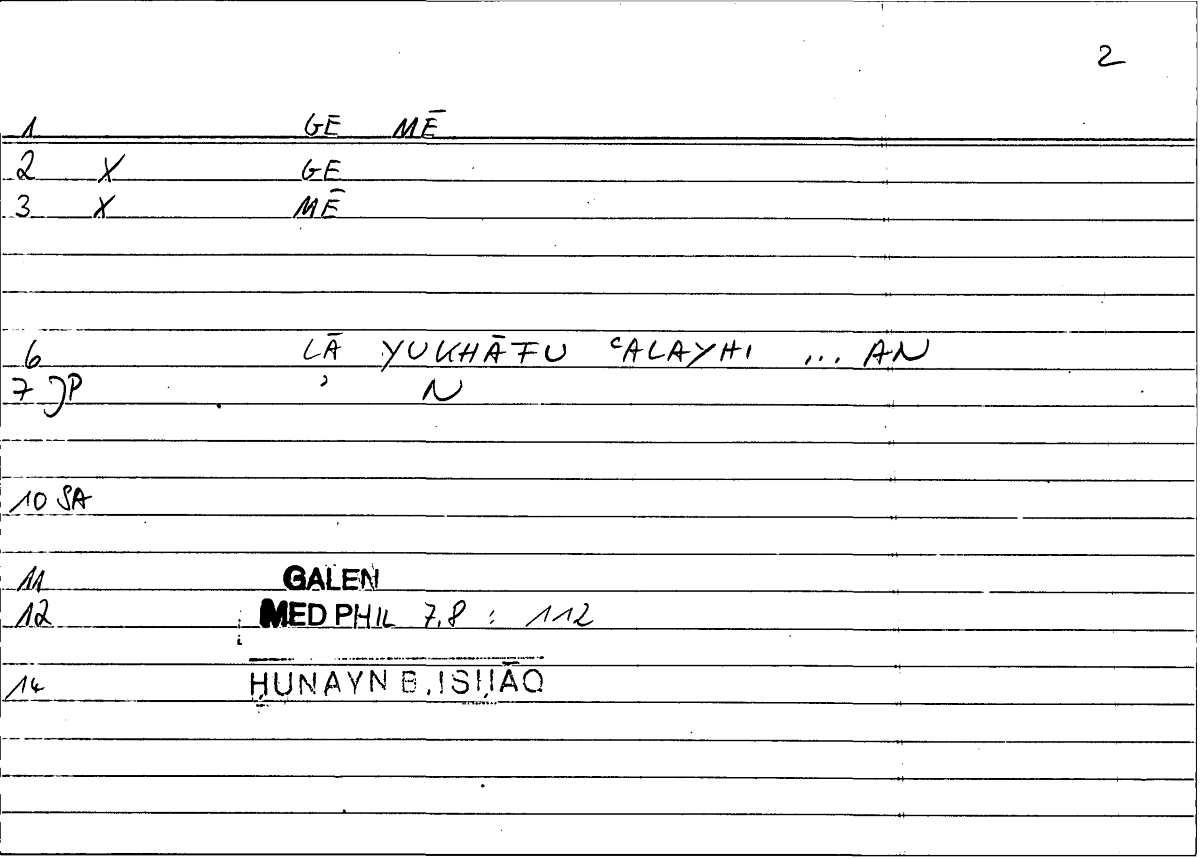 2
1 GE MĒ
2 X GE
3 X MĒ
6 LĀ YUKHĀFU ʿALAYHI ... AN
7 JP ʾ N
10 SA
11 GALEN
12 MED PHIL 7,8 : 112
14 ḤUNAYN B. ISḤĀQ